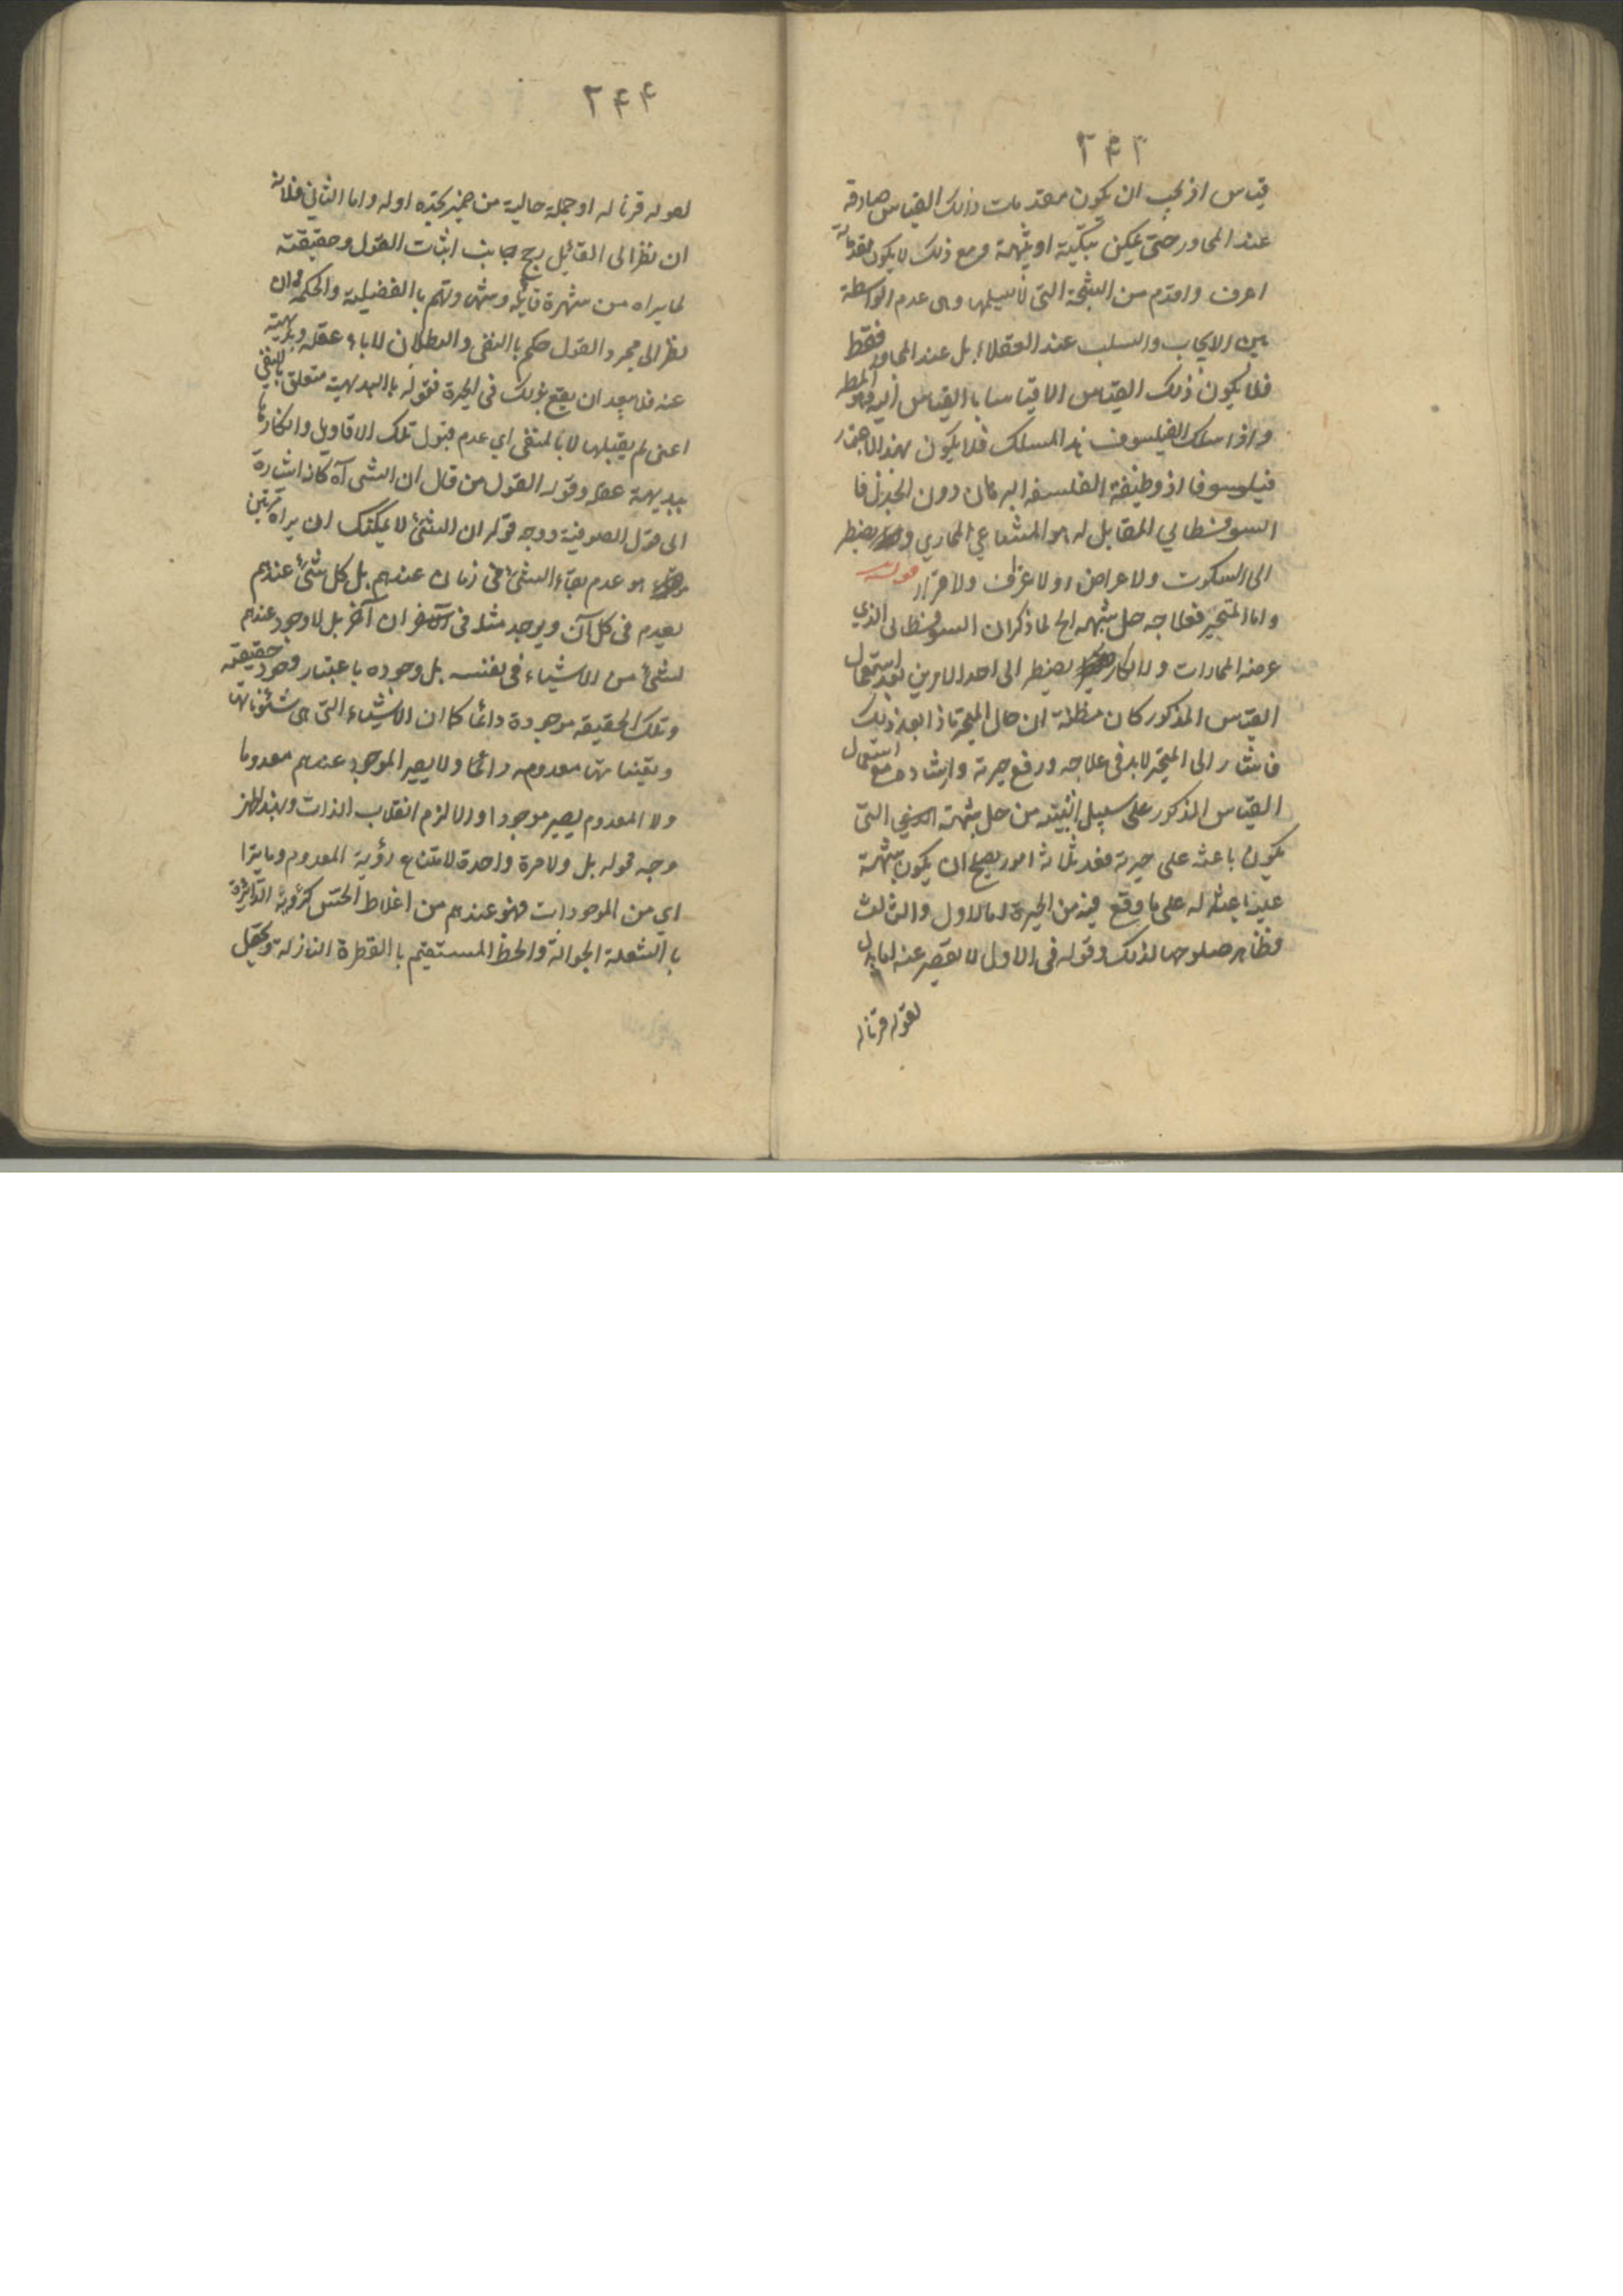 ۲۴۳
قياس اذ يجب ان يكون مقدمات ذلك القياس صادقة
عند المحاور حتى يمكن تبكيته او يثبته ومع ذلك لا يكون مقدماته
اعرف واقدم من النتيجة التي لا سبيلها وهي عدم الواسطة
بين الايجاب والسلب عند العقلاء بل عند المحاور فقط
فلا يكون ذلك القياس الا قياسا بالقياس اليه فهو المط
واذا سلك الفيلسوف هذا المسلك فلا يكون بهذا الاعتبار
فيلسوفا اذ وظيفة الفلسفة البرهان دون الجدل فا
السوفسطائي المقابل له هو المشاغبي المماري يضطر
الى السكوت ولاعراض اولا عراف ولا قرار قوله
واما المتحير فعلاجه حل شبهه الخ لما ذكر ان السوفسطائي الذي
غرضه المماراة والانكار يضطر الى احد الامرين بعد استعمال
القياس المذكور كان مظنة ان حال المتحير ماذا بعد ذلك
فاشار الى المتحير لابد في علاجه ورفع حيرته وارشاده مع استعمال
القياس المذكور على سبيل من حل شبهته التي
يكون باعثه على حيرته فعد ثلاثة امور يصح ان يكون شبهة
عليه باعثه له على ما وقع فيه من الحيرة اما الاول والثالث
فظاهر صلوحها لذلك وقوله في الاول لا يقصر عنه اما بدل
لقوله قرنا له
۲۴۴
لقوله قرنا له او جملة حالية من ضمير يجده اوله واما الثاني فلانه
ان نظر الى القائل رجح جانب اثبات القول وحقيقته
لما يراه من شهرة قايله وشهد وتهم بالفضيلة والحكمة وان
نظر الى مجرد القول حكم بالنفى والبطلان لاباء عقله وبديهته
عنه فلا يبعد ان يقع بذلك في الحيرة فقوله بالبديهية متعلق بالنفي
اعنى لم يقبلها لا بالمنفى اي عدم قبول تلك الاقاويل وانكارها
ببديهة عقله وقوله القول من قال ان الشى آه كانه اشارة
الى قول الصوفية ووجه قوله ان الشئ لا يمكنك ان يراه مرتين
هو عدم بقاء الشئ في زمان عندهم بل كل شئ عندهم
يعدم في كل آن ويوجد مثله في ان آخر بل لا وجود عندهم
لشئ من الاشياء في نفسه بل وجوده باعتبار وجود حقيقته
وتلك الحقيقه موجودة دائما كما ان الاشياء التي هي شئوناتها
وتعيناتها معدومه دائما ولا يصير الموجود عندهم معدوما
ولا المعدوم يصير موجودا والا لزم انقلاب الذات وبهذا ظهر
وجه قوله بل ولا مرة واحدة لامتناع رؤية المعدوم وما يترا
اي من الموجودات فهو عندهم من اغلاط الحس كرؤية الدائرة
بالشعلة الجوالة والخط المستقيم بالقطرة النازلة